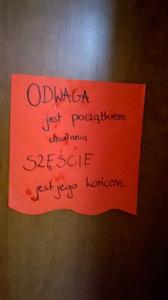 ODWAGA
jest początkiem
działania
SZĘŚCIE
jest jego końcem.